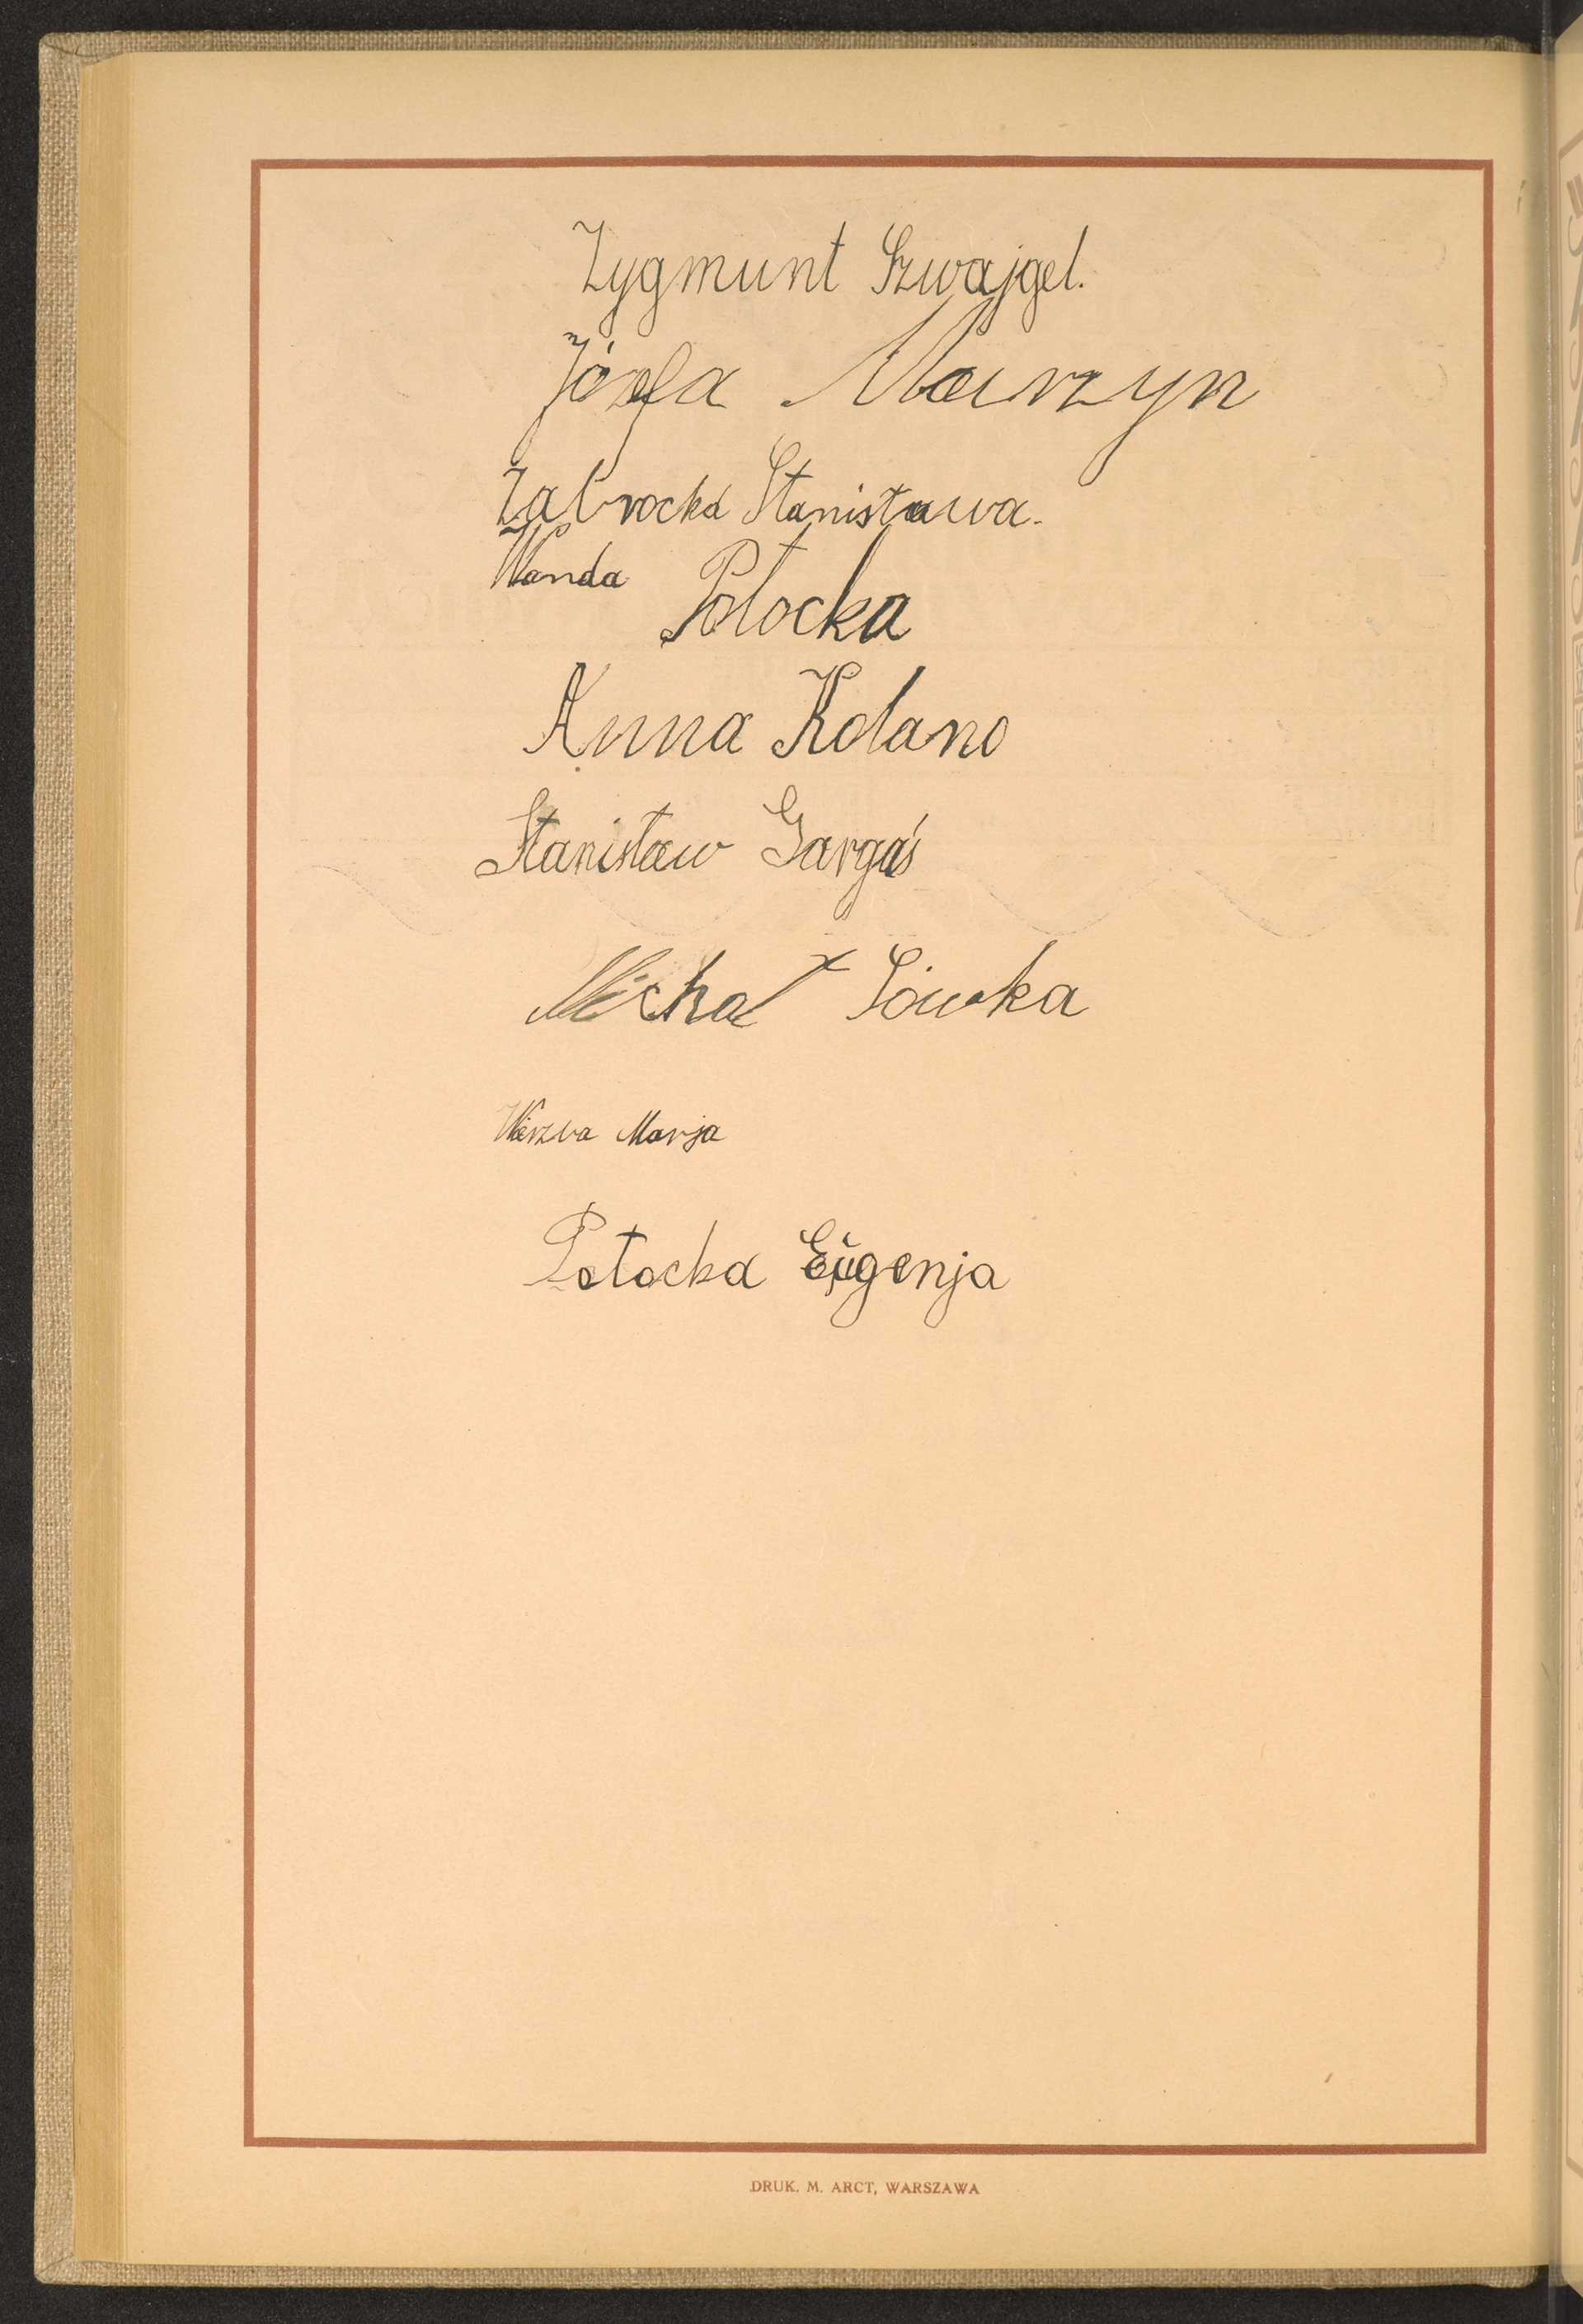 Zygmunt Szwajgel.
Józefa Marzyn
Zabrocka Stanisława.
Wanda Potocka
Anna Kolano
Stanisław Gargaś
Michał Sówka
Wierzba Marja
Potocka Eugenja
DRUK. M. ARCT, WARSZAWA